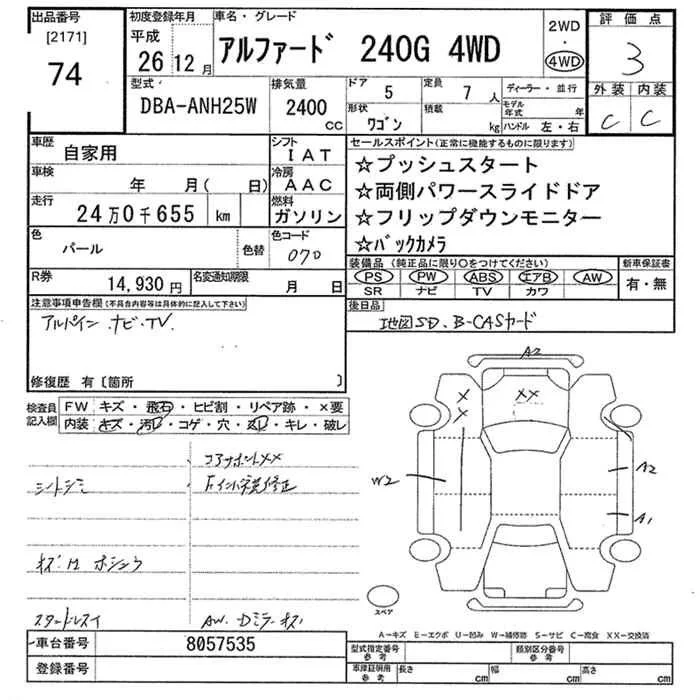 出品番号
[2171]
74
初度登録年月
平成
26 12月
車名・グレード
アルファード 240G 4WD
2WD
・
4WD
評価点
3
外装 内装
C C
型式
DBA-ANH25W
排気量
2400
cc
ドア
5
定員
7 人
形状
ワゴン
積載
kg
ディーラー・並行
モデル
年式 年
ハンドル 左・右
車歴
自家用
シフト
IAT
車検
年 月( 日)
冷房
AAC
走行
24万0千655 km
燃料
ガソリン
色
パール
色替
色コード
070
R券
14,930円
名変通知期限
月 日
セールスポイント(正常に機能するものに限ります)
☆プッシュスタート
☆両側パワースライドドア
☆フリップダウンモニター
☆バックカメラ
装備品(純正品に限り○をつけてください)
PS PW ABS エアB AW
SR ナビ TV カワ
新車保証書
有・無
後日品
地図SD、B-CASカード
注意事項申告欄(不具合内容等は具体的に記入して下さい)
アルパイン ナビ・TV.
修復歴 有〔箇所 〕
検査員
記入欄
FW キズ・飛石・ヒビ割・リペア跡・×要
内装 キズ・汚れ・コゲ・穴・スレ・キレ・破レ
コアサポートXX
シートシミ
スタッドレスイ
AW. Dミラーキズ
A2
X
X
XX
W2
A2
A1
スペア
A-キズ E-エクボ U-凹み W-補修跡 S-サビ C-腐食 XX-交換済
車台番号 8057535
登録番号
型式指定番号
参考
類別区分番号
参考
車庫証明用
参考
長さ cm 幅 cm 高さ cm